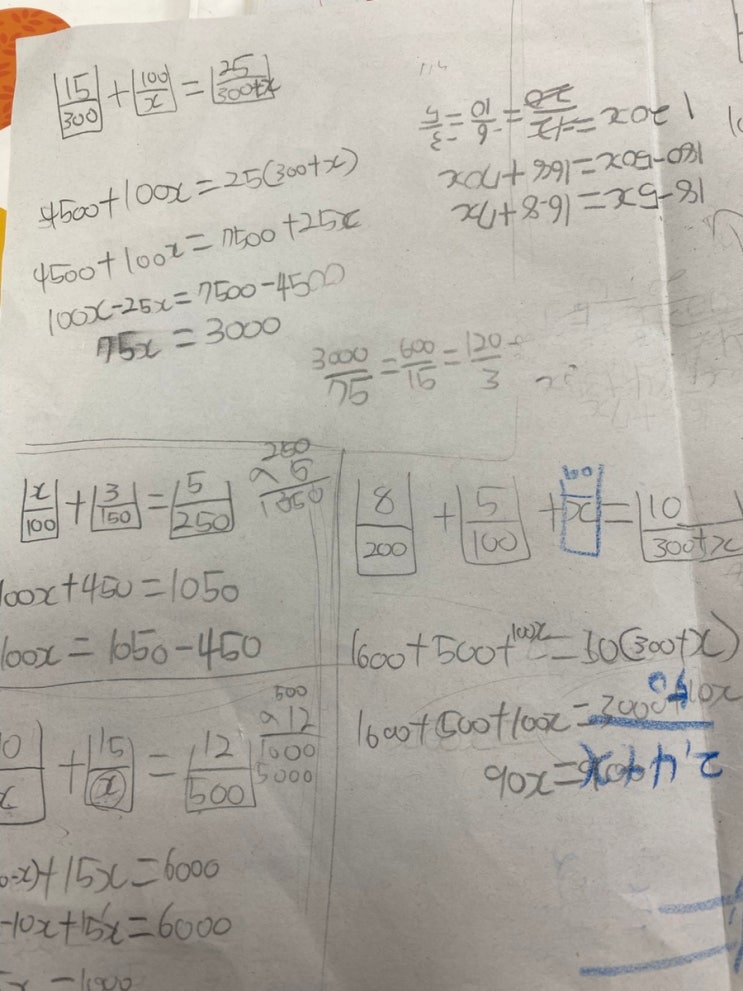 15/300 + 100/x = 25/300+x
4500+100x=25(300+x)
4500+100x=7500+25x
100x-25x=7500-4500
75x=3000
3000/75=600/15=120/3
18-5x=16.8+7x
180-50x=168+70x
x/100 + 3/150 = 5/250
250
5
1050
100x+450=1050
100x=1050-450
8/200 + 5/100 + 100/x = 10/300+x
1600+500+100x=10(300+x)
1600+500+100x=3000+10x
90x=
0/x + 15/x = 12/500
500
12
1000
5000
+15x=6000
-10x+15x=6000